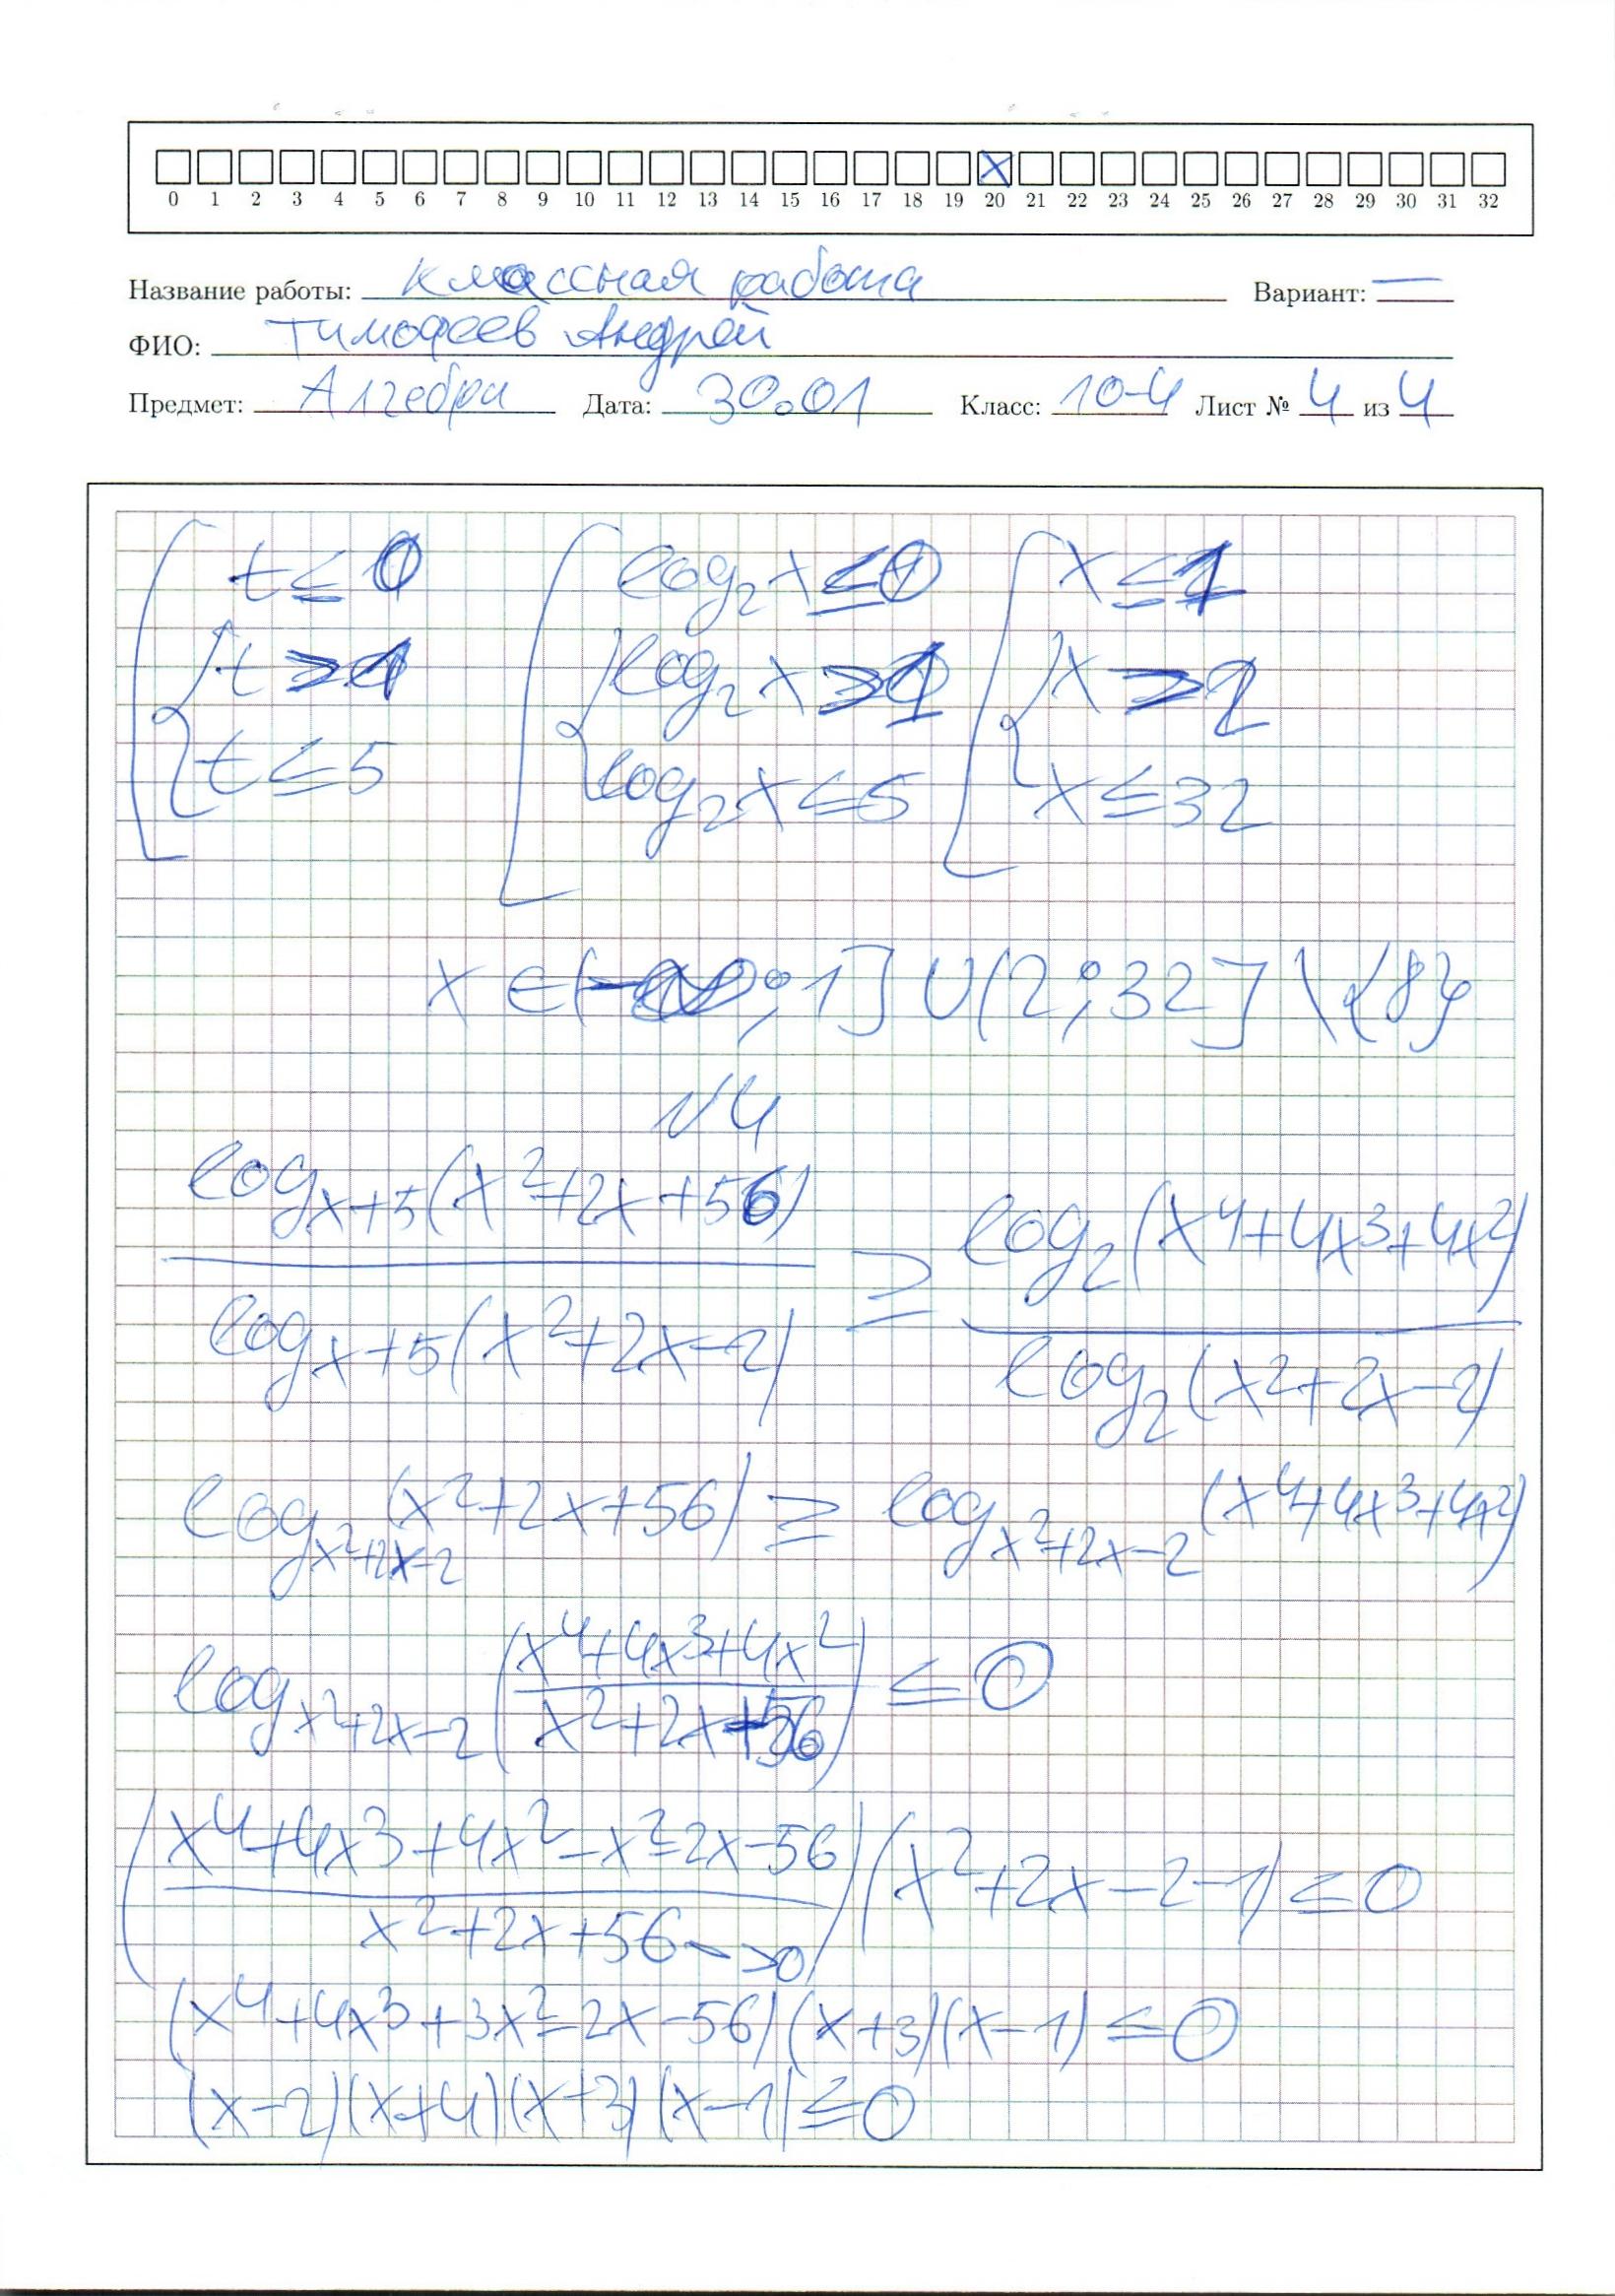 0 1 2 3 4 5 6 7 8 9 10 11 12 13 14 15 16 17 18 19 20 21 22 23 24 25 26 27 28 29 30 31 32
Название работы: классная работа Вариант: —
ФИО: Тимофеев Андрей
Предмет: Алгебра Дата: 30.01 Класс: 10-4 Лист № 4 из 4
t ≤ 0 log₂x ≤ 0 x ≤ 1
t > 1 log₂x > 1 x > 2
t ≤ 5 log₂x ≤ 5 x ≤ 32
x ∈ (-∞; 1] ∪ (2; 32] \ {8}
√4
log_{x+5}(x²+2x+56) / log_{x+5}(x²+2x-2) ≥ log₂(x⁴+4x³+4x²) / log₂(x²+2x-2)
log_{x²+2x-2}(x²+2x+56) ≥ log_{x²+2x-2}(x⁴+4x³+4x²)
log_{x²+2x-2}((x⁴+4x³+4x²)/(x²+2x+56)) ≤ 0
((x⁴+4x³+4x²-x²-2x-56)/(x²+2x+56 → >0))(x²+2x-2-1) ≤ 0
(x⁴+4x³+3x²-2x-56)(x+3)(x-1) ≤ 0
(x-2)(x+4)(x+3)(x-1) ≤ 0